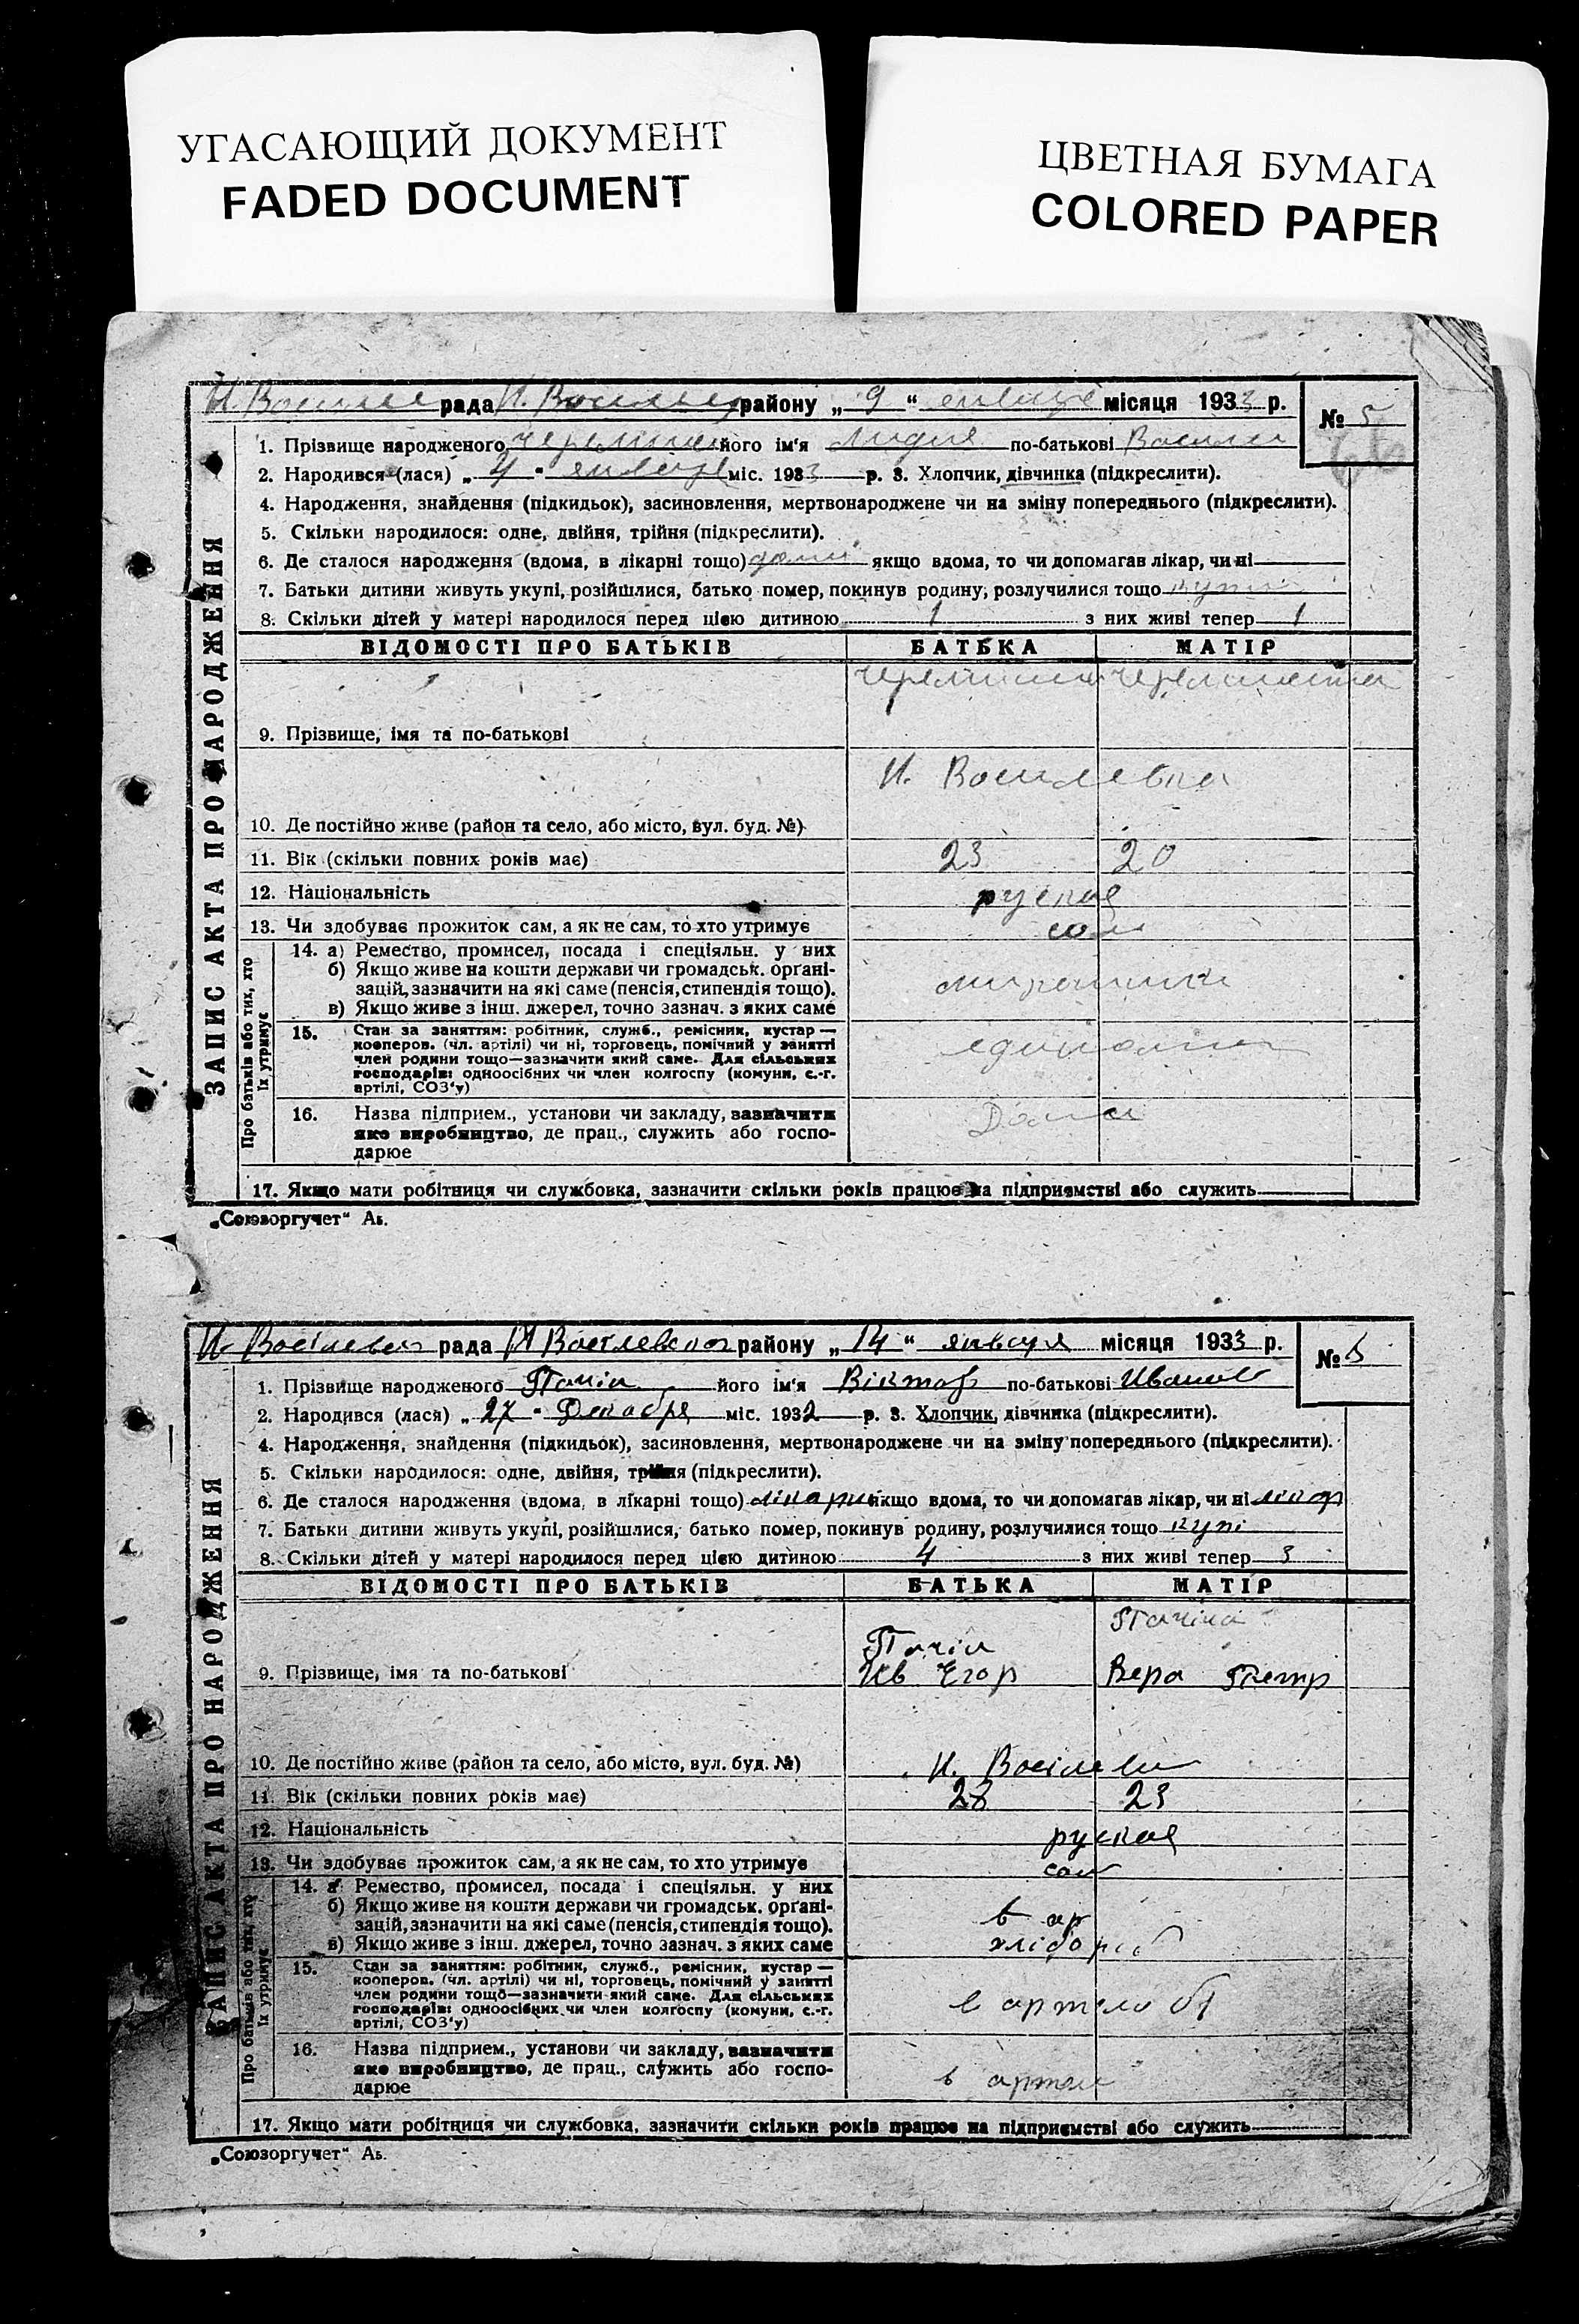 УГАСАЮЩИЙ ДОКУМЕНТ
FADED DOCUMENT
ЦВЕТНАЯ БУМАГА
COLORED PAPER
рада району „ 9 “ місяця 1933 р.
№ 5
1. Прізвище народженого його ім'я Лидия по-батькові Васили
2. Народився (лася) „ 4 “ января міс. 1933 р. 3. Хлопчик, дівчинка (підкреслити).
4. Народження, знайдення (підкидьок), засиновлення, мертвонароджене чи на зміну попереднього (підкреслити).
5. Скільки народилося: одне, двійня, трійня (підкреслити).
6. Де сталося народження (вдома, в лікарні тощо) якщо вдома, то чи допомагав лікар, чи ні
7. Батьки дитини живуть укупі, розійшлися, батько помер, покинув родину, розлучилися тощо
8. Скільки дітей у матері народилося перед цією дитиною 1 з них живі тепер 1
ВІДОМОСТІ ПРО БАТЬКІВ БАТЬКА МАТІР
9. Прізвище, імя та по-батькові
И. Василевка
10. Де постійно живе (район та село, або місто, вул. буд. №)
11. Вік (скільки повних років має) 23 20
12. Національність руская
13. Чи здобуває прожиток сам, а як не сам, то хто утримує сам
14. а) Ремество, промисел, посада і спеціяльн. у них
б) Якщо живе на кошти держави чи громадськ. орґані-
зацій, зазначити на які саме (пенсія, стипендія тощо).
в) Якщо живе з інш. джерел, точно зазнач. з яких саме
15. Стан за заняттям: робітник, служб., ремісник, кустар —
кооперов. (чл. артілі) чи ні, торговець, помічний у занятті
член родини тощо—зазначити який саме. Для сільських
господарів: одноосібних чи член колгоспу (комуни, с.-г.
артілі, СОЗ'у)
16. Назва підприєм., установи чи закладу, зазначити
яке виробництво, де прац., служить або госпо-
дарює
Дома
17. Якщо мати робітниця чи службовка, зазначити скільки років працює на підприємстві або служить
ЗАПИС АКТА ПРО НАРОДЖЕННЯ
Про батьків або тих, хто
їх утримує
„Союзоргучет“ Аь.
рада району „ 14 “ января місяця 1933 р.
№
1. Прізвище народженого Панін його ім'я Віктор по-батькові Иванов
2. Народився (лася) „ 27 “ Декабря міс. 1932 р. 3. Хлопчик, дівчинка (підкреслити).
4. Народження, знайдення (підкидьок), засиновлення, мертвонароджене чи на зміну попереднього (підкреслити).
5. Скільки народилося: одне, двійня, трійня (підкреслити).
6. Де сталося народження (вдома, в лікарні тощо) лікарні якщо вдома, то чи допомагав лікар, чи ні лікар
7. Батьки дитини живуть укупі, розійшлися, батько помер, покинув родину, розлучилися тощо купі
8. Скільки дітей у матері народилося перед цією дитиною 4 з них живі тепер 3
ВІДОМОСТІ ПРО БАТЬКІВ БАТЬКА МАТІР
Панін Паніна
9. Прізвище, імя та по-батькові Ив Егор Вера Петр
10. Де постійно живе (район та село, або місто, вул. буд. №)
11. Вік (скільки повних років має) 28 23
12. Національність руская
13. Чи здобуває прожиток сам, а як не сам, то хто утримує сам
14. а Ремество, промисел, посада і спеціяльн. у них
б) Якщо живе на кошти держави чи громадськ. орґані-
зацій, зазначити на які саме (пенсія, стипендія тощо).
в) Якщо живе з інш. джерел, точно зазнач. з яких саме
в ар
хлібороб
15. Стан за заняттям: робітник, служб., ремісник, кустар —
кооперов. (чл. артілі) чи ні, торговець, помічний у занятті
член родини тощо—зазначити який саме. Для сільських
господарів: одноосібних чи член колгоспу (комуни, с.-г.
артілі, СОЗ'у)
16. Назва підприєм., установи чи закладу, зазначити
яке виробництво, де прац., служить або госпо-
дарює
в артел
17. Якщо мати робітниця чи службовка, зазначити скільки років працює на підприємстві або служить
ЗАПИС АКТА ПРО НАРОДЖЕННЯ
Про батьків або тих, хто
їх утримує
„Союзоргучет“ Аь.